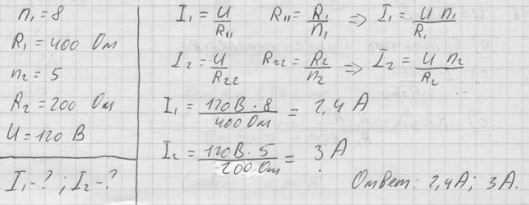 n₁ = 8
R₁ = 400 Ом
n₂ = 5
R₂ = 200 Ом
U = 120 В
I₁ - ? ; I₂ - ?
I₁ = U/R₁₁ R₁₁ = R₁/n₁ => I₁ = U n₁/R₁
I₂ = U/R₂₂ R₂₂ = R₂/n₂ => I₂ = U n₂/R₂
I₁ = 120 В · 8/400 Ом = 2,4 А
I₂ = 120 В · 5/200 Ом = 3 А
Ответ: 2,4 А; 3 А.